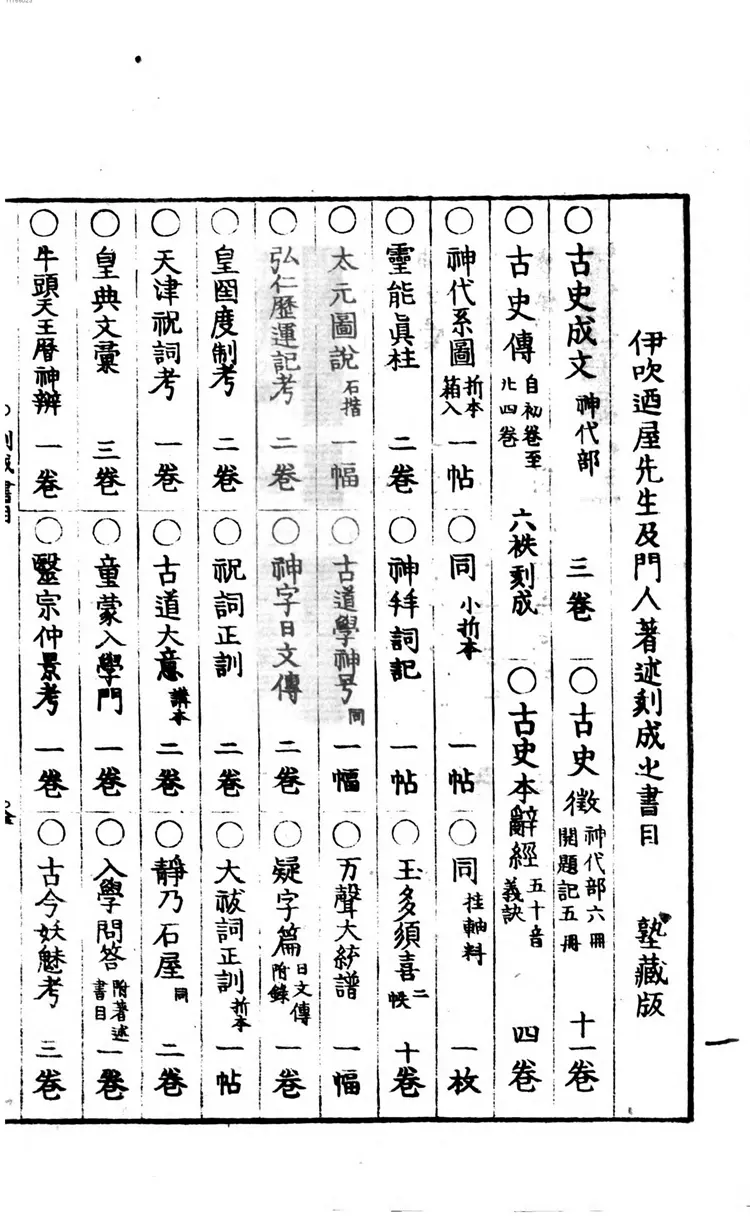 伊吹廼屋先生及門人著述刻成之書目 塾藏版
○古史成文 神代部 三卷 ○古史徴 神代部六冊 開題記五冊 十一卷
○古史傳 自初卷至廿四卷 六袟刻成 ○古史本辭經 五十音義訣 四卷
○神代系圖 折本箱入 一帖 ○同 小折本 一帖 ○同 挂軸料 一枚
○靈能眞柱 二卷 ○神拜詞記 一帖 ○玉多須喜 二帙 十卷
○太元圖說 石摺 一幅 ○古道學神号 同 一幅 ○万聲大統譜 一幅
○弘仁歷運記考 二卷 ○神字日文傳 二卷 ○疑字篇 日文傳附錄 一卷
○皇國度制考 二卷 ○祝詞正訓 二卷 ○大祓詞正訓 折本 一帖
○天津祝詞考 一卷 ○古道大意 講本 二卷 ○靜乃石屋 同 二卷
○皇典文彙 三卷 ○童蒙入學門 一卷 ○入學問答 附著述書目 一卷
○牛頭天王曆神辨 一卷 ○醫宗仲景考 一卷 ○古今妖魅考 三卷
一